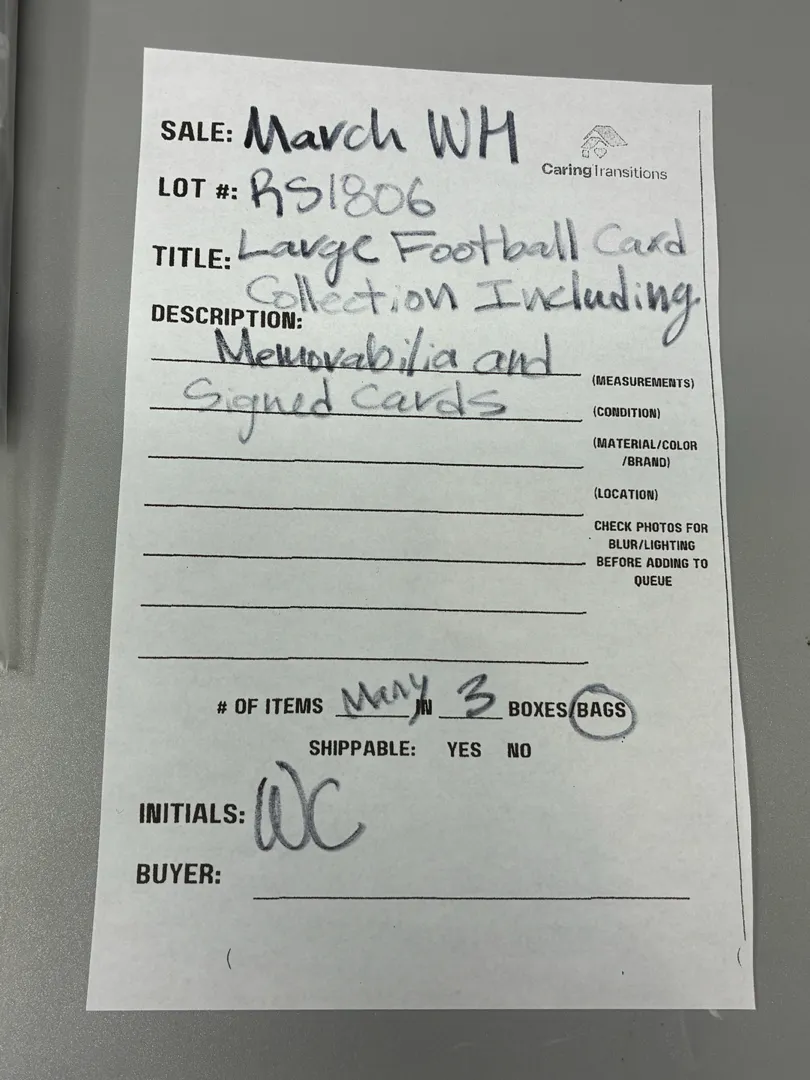 SALE: March WH
CaringTransitions
LOT #: RS1806
TITLE: Large Football Card
Collection Including
DESCRIPTION:
Memorabilia and
(MEASUREMENTS)
Signed Cards
(CONDITION)
(MATERIAL/COLOR
/BRAND)
(LOCATION)
CHECK PHOTOS FOR
BLUR/LIGHTING
BEFORE ADDING TO
QUEUE
# OF ITEMS Many IN 3 BOXES/BAGS
SHIPPABLE: YES NO
INITIALS: WC
BUYER: